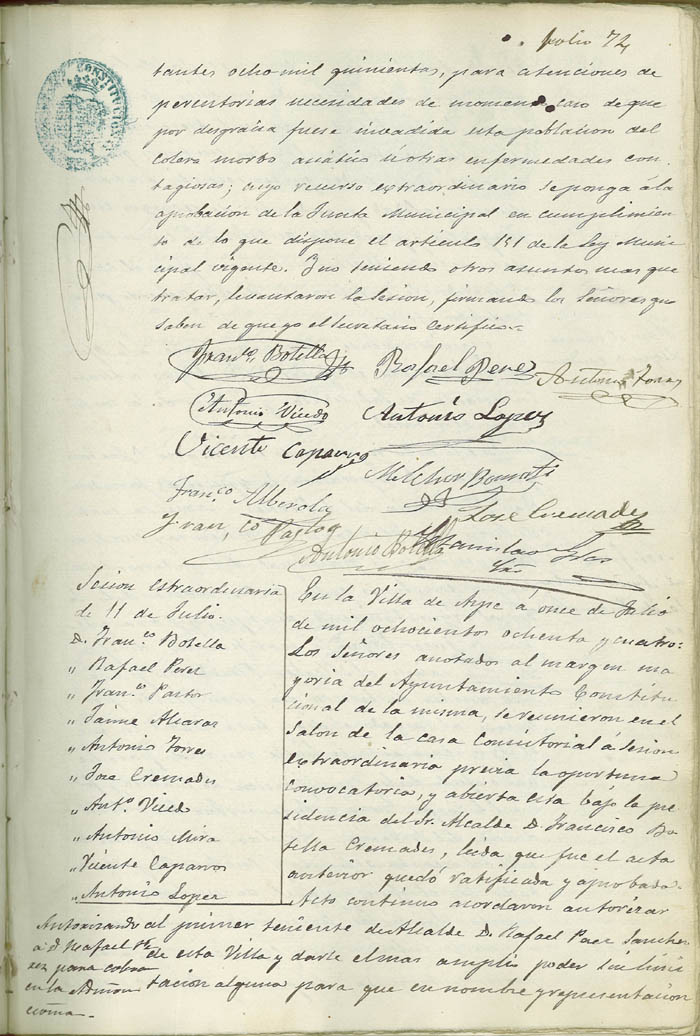 folio 72
CONSTITUCI
tantes ocho mil quinientos, para atenciones de
perentorias necesidades de momento caso de que
por desgracia fuese invadida esta poblacion del
colera morbo asiático ú otras enfermedades con
tagiosas; cuyo recurso extraordinario se ponga á la
aprobacion de la Junta Municipal en cumplimien
to de lo que dispone el articulo 151 de la Ley Muni
cipal vigente. Y no teniendo otros asuntos mas que
tratar, levantaron la sesion, firmando los Señores que
saben de que yo el Secretario certifico.
Fran.co Botella Rafael Perez Antonio Torres
Antonio Vicedo Antonio Lopez
Vicente Caparros Melchor Bonmati
Fran.co Alberola Jose Cremades
Fran.co Pastor Antonio Botella Estanislao
Srio
Sesion estraordinaria
de 11 de Julio.
D. Fran.co Botella
„ Rafael Perez
„ Fran.co Pastor
„ Jaime Alcaraz
„ Antonio Torres
„ Jose Cremades
„ Ant.o Vicedo
„ Antonio Mira
„ Vicente Caparros
„ Antonio Lopez
En la Villa de Aspe á once de Julio
de mil ochocientos ochenta y cuatro:
Los Señores anotados al margen ma
yoria del Ayuntamiento Constitu
cional de la misma, se reunieron en el
Salon de la casa Consistorial á sesion
extraordinaria previa la oportuna
convocatoria, y abierta esta bajo la pre
sidencia del Sr. Alcalde D. Francisco Bo
tella Cremades, leida que fue el acta
anterior quedó ratificada y aprobada.
Acto continuo acordaron autorizar
al primer teniente de Alcalde D. Rafael Perez Sanchez
de esta Villa y darle el mas amplio poder sin limi
tacion alguna para que en nombre y representacion
Autorizando
á D. Rafael Pe
rez para cobrar
en la Admon